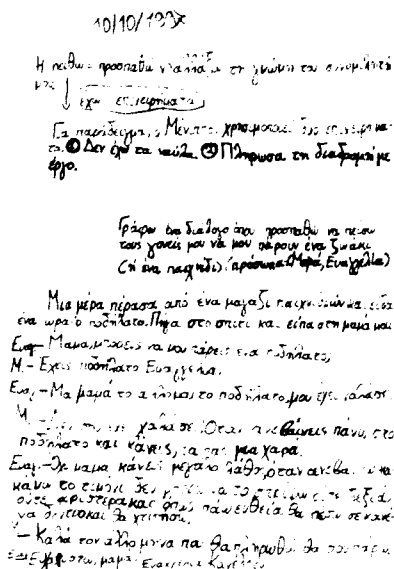 10/10/1997
Η πειθώ = προσπαθώ ν' αλλάξω τη γνώμη του συνομιλητή
μου
έχω επιχειρήματα
Για παράδειγμα, ο Μένιππος χρησιμοποιεί δύο επιχειρήμα-
τα. ① Δεν έχω τα ναύλα ② Πλήρωσα τη διαδρομή με
έργο.
Γράφω ένα διάλογο όπου προσπαθώ να πείσω
τους γονείς μου να μου πάρουν ένα ζωάκι
(ή ένα παιχνίδι) (πρόσωπα: Μαμά, Ευαγγελία)
Μια μέρα πέρασα από ένα μαγαζί παιχνιδιών και είδα
ένα ωραίο ποδήλατο. Πήγα στο σπίτι και είπα στη μαμά μου
Ευαγ - Μαμά, μπορείς να μου πάρεις ένα ποδήλατο;
Μ. - Έχεις ποδήλατο Ευαγγελία.
Ευαγ. - Μα μαμά το άλλο μου το ποδήλατο μου έχει χαλάσει.
Μ. - χαλάσει. Όταν ανεβαίνεις πάνω στο
ποδήλατο και κάνεις, μια χαρά.
Ευαγ - Όχι μαμά κάνεις μεγάλο λάθος, όταν ανεβαίνω και
κάνω το τιμόνι δεν ούτε δεξιά
ούτε αριστερά και όπως πάω ευθεία θα πέσω σε κανέ-
να και θα χτυπήσω.
- Καλά τον άλλο μήνα που θα πληρωθώ θα σου πάρω.
Ευχαριστώ, μαμά. Ευαγγελία